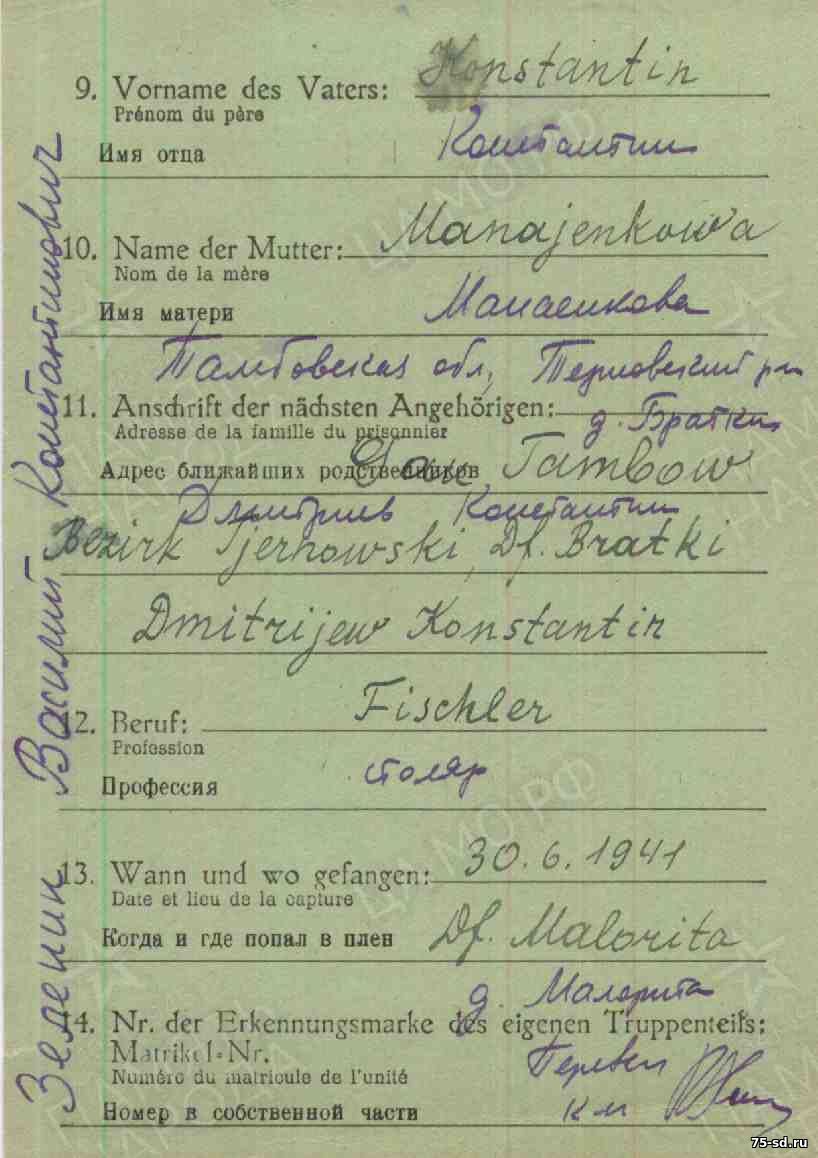 9. Vorname des Vaters: Konstantin
Prénom du père
Имя отца Константин
10. Name der Mutter: Manajenkowa
Nom de la mère
Имя матери Манаенкова
Тамбовская обл, Терновский рн
11. Anschrift der nächsten Angehörigen:
д. Братки
Adresse de la famille du prisonnier
Адрес ближайших родственников Gau Tambow
Дмитриев Константин
Bezirk Tjernowski, Df. Bratki
Dmitrijew Konstantin
12. Beruf: Fischler
Profession
Профессия столяр
13. Wann und wo gefangen: 30.6.1941
Date et lieu de la capture
Когда и где попал в плен Df. Malorita
д. Малорита
14. Nr. der Erkennungsmarke des eigenen Truppenteils:
Matrikel-Nr.
Numéro du matricule de l'unité
Номер в собственной части
Василий Константинович
ЦАМО РФ
75-sd.ru